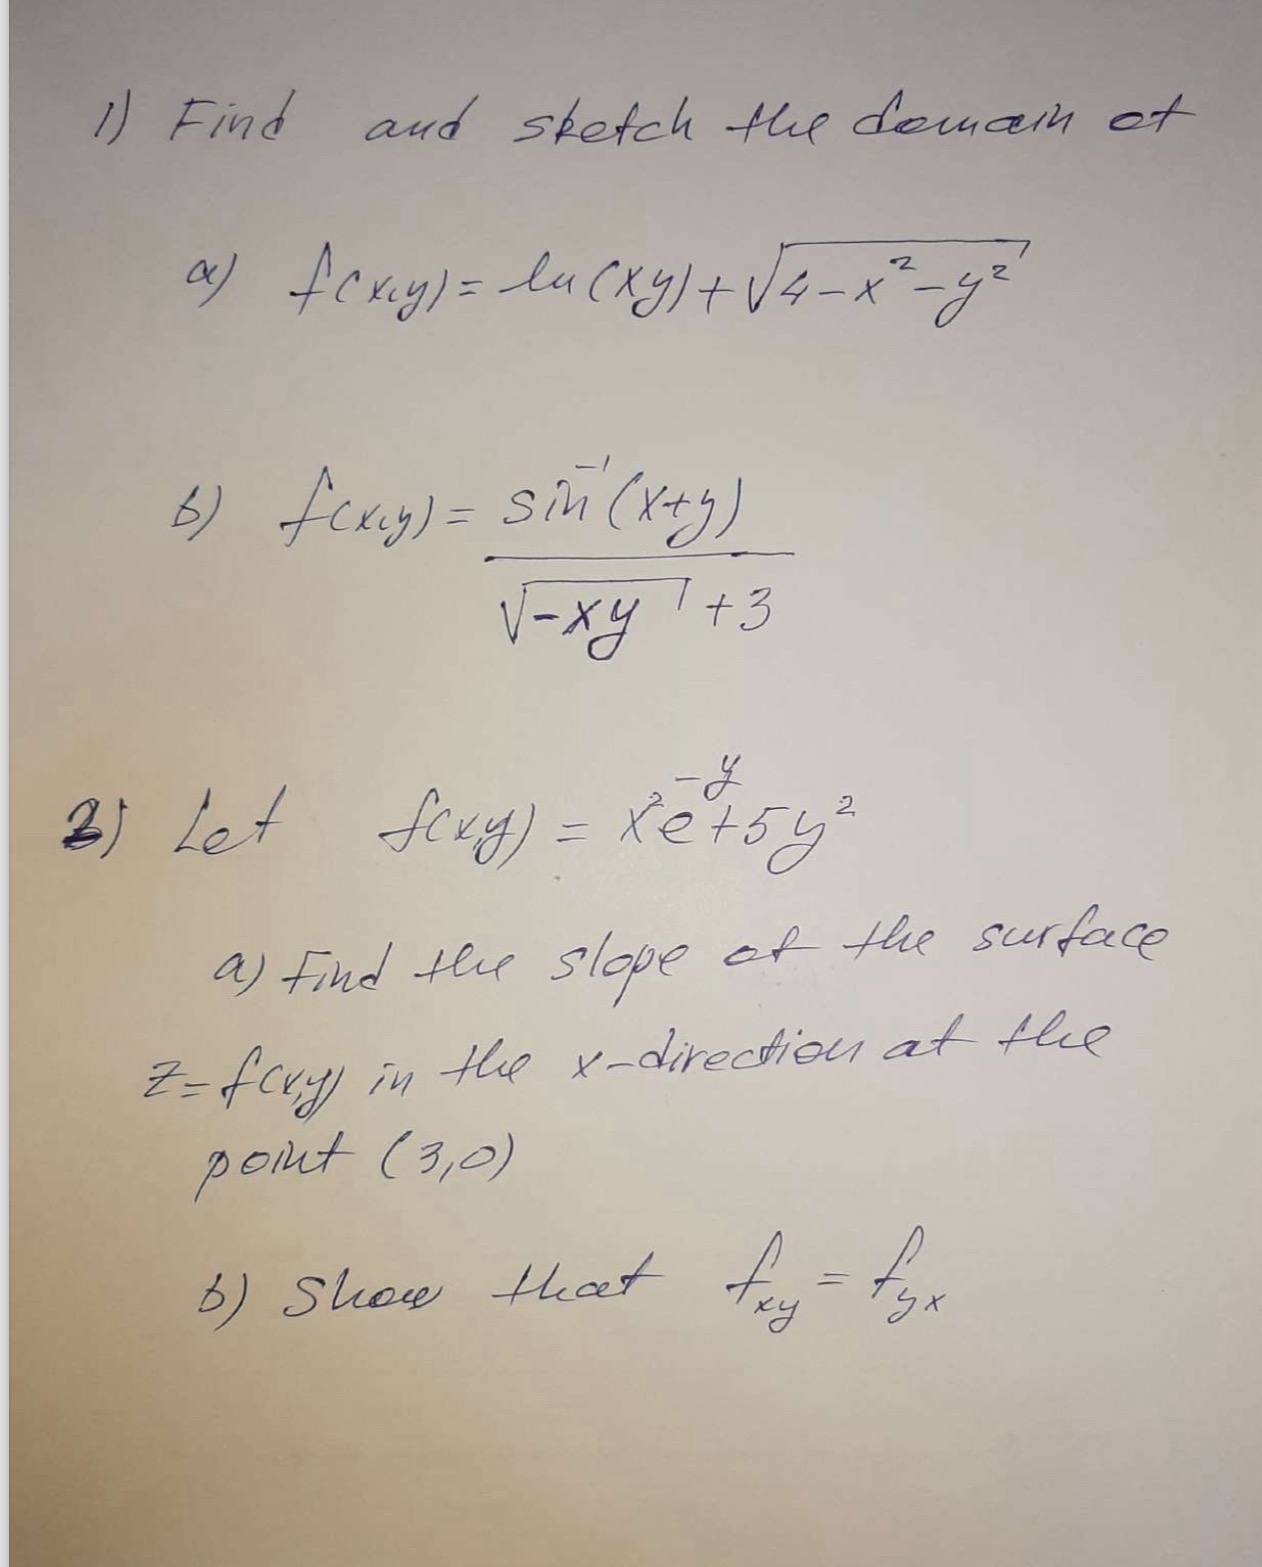 1) Find and sketch the domain of
a) f(x,y) = ln(xy) + √(4-x²-y²)
b) f(x,y) = sin⁻¹(x+y)
√(-xy) + 3
2) Let f(x,y) = x²e⁻ʸ+5y²
a) Find the slope of the surface
z=f(x,y) in the x-direction at the
point (3,0)
b) Show that f_xy = f_yx